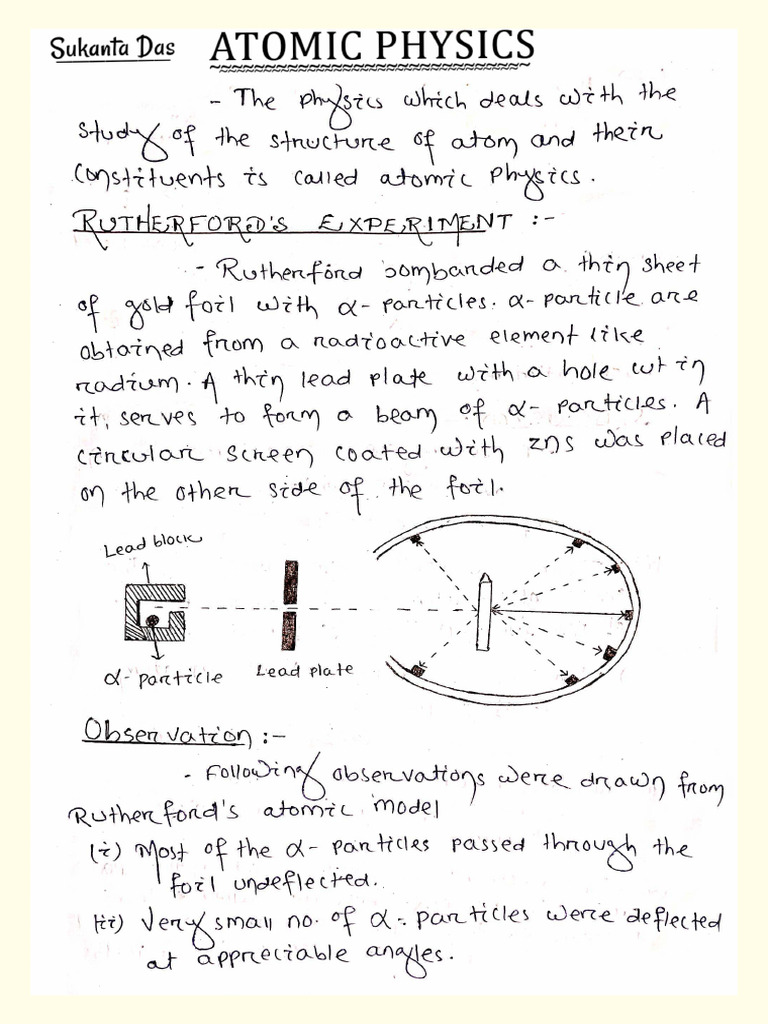 Sukanta Das ATOMIC PHYSICS
- The physics which deals with the
study of the structure of atom and their
constituents is called atomic physics.
RUTHERFORD'S EXPERIMENT :-
- Rutherford bombanded a thin sheet
of gold foil with α- particles. α- particle are
obtained from a radioactive element like
radium. A thin lead plate with a hole cut in
it, serves to form a beam of α- particles. A
circular screen coated with zns was placed
on the other side of the foil.
Lead block
α- particle
Lead plate
Observation :-
- Following observations were drawn from
Rutherford's atomic model
(i) Most of the α- particles passed through the
foil undeflected.
(ii) Very small no. of α- particles were deflected
at appreciable angles.